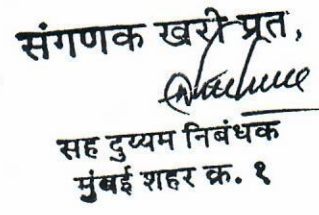 संगणक खरी प्रत,
सह दुय्यम निबंधक
मुंबई शहर क्र. १